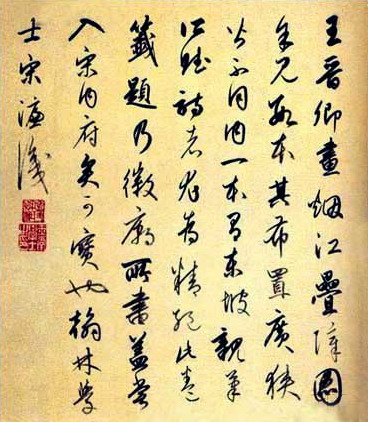 王晉卿畫烟江疊嶂圖
余見數本其布置廣狹
皆不同内一本有東坡親筆
江賦詩者尤為精絕此卷
籤題乃徽廟所書蓋嘗
入宋内府矣可寶也翰林學
士宋濂識